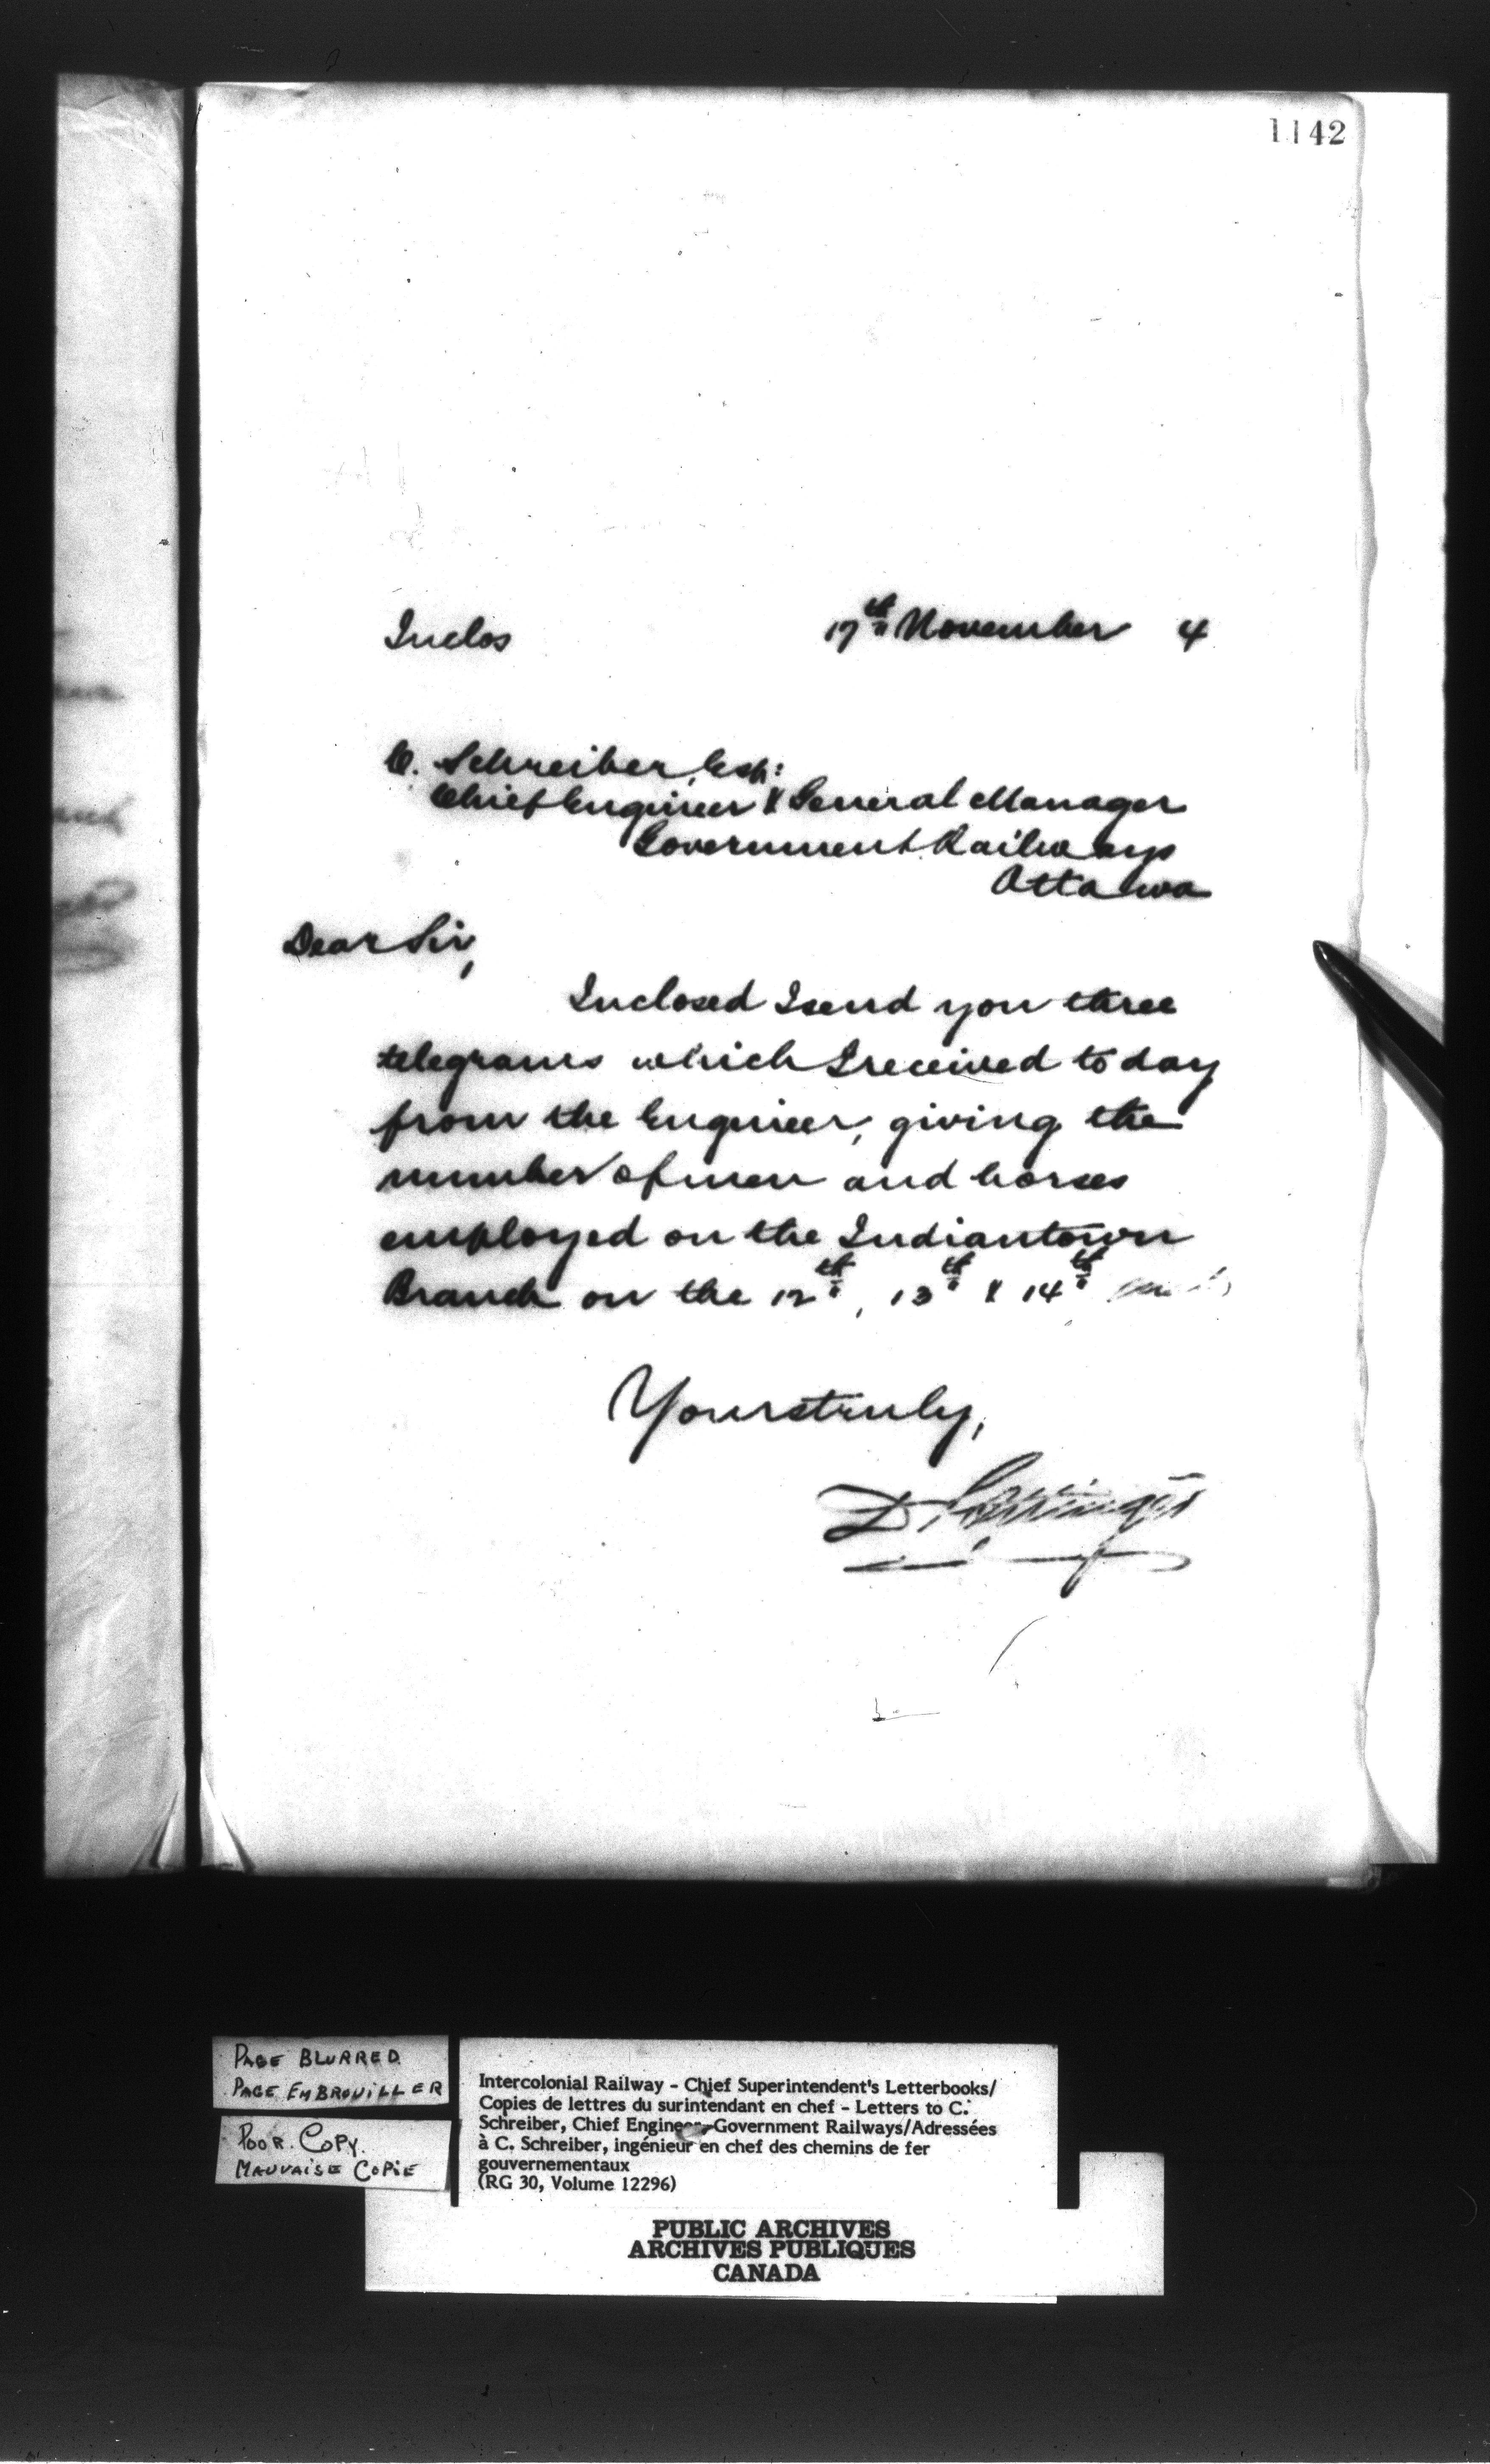 1142
Inclos 17th November 4
C. Schreiber, Esq:
Chief Engineer & General Manager
Government Railways
Ottawa
Dear Sir,
Inclosed I send you three
telegrams which I received to day
from the Engineer, giving the
number of men and horses
employed on the Indiantown
Branch on the 12th, 13th & 14th
Yours truly,
D. Pottinger
PAGE BLURRED
PAGE EMBROUILLER
POOR COPY.
MAUVAISE COPIE
Intercolonial Railway - Chief Superintendent's Letterbooks/
Copies de lettres du surintendant en chef - Letters to C.
Schreiber, Chief Engineer, Government Railways/Adressées
à C. Schreiber, ingénieur en chef des chemins de fer
gouvernementaux
(RG 30, Volume 12296)
PUBLIC ARCHIVES
ARCHIVES PUBLIQUES
CANADA